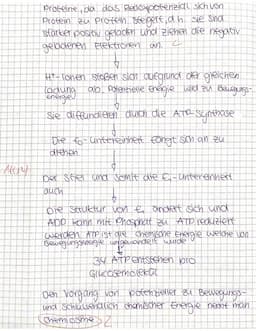 Proteine, da das Redoxpotenzial sich von
Protein zu Protein steigert, d.h. sie sind
stärker positiv geladen und ziehen die negativ
geladenen Elektronen an.
H⁺-Ionen stoßen sich aufgrund der gleichen
Ladung ab. Potentielle Energie wird zu Bewegungs-
energie
Sie diffundieren durch die ATP-Synthase
Die F₀-Untereinheit fängt sich an zu
drehen
Der Stiel und somit die F₁-Untereinheit
auch
Die Struktur von F₁ ändert sich und
ADD kann mit Phosphat zu ATP reduziert
werden. ATP ist die chemische Energie welche von
Bewegungsenergie umgewandelt wurde
34 ATP entstehen pro
Glucosemolekül
Den Vorgang von potentieller zu Bewegungs-
und schlussendlich chemischer Energie nennt man
Chemiosmose